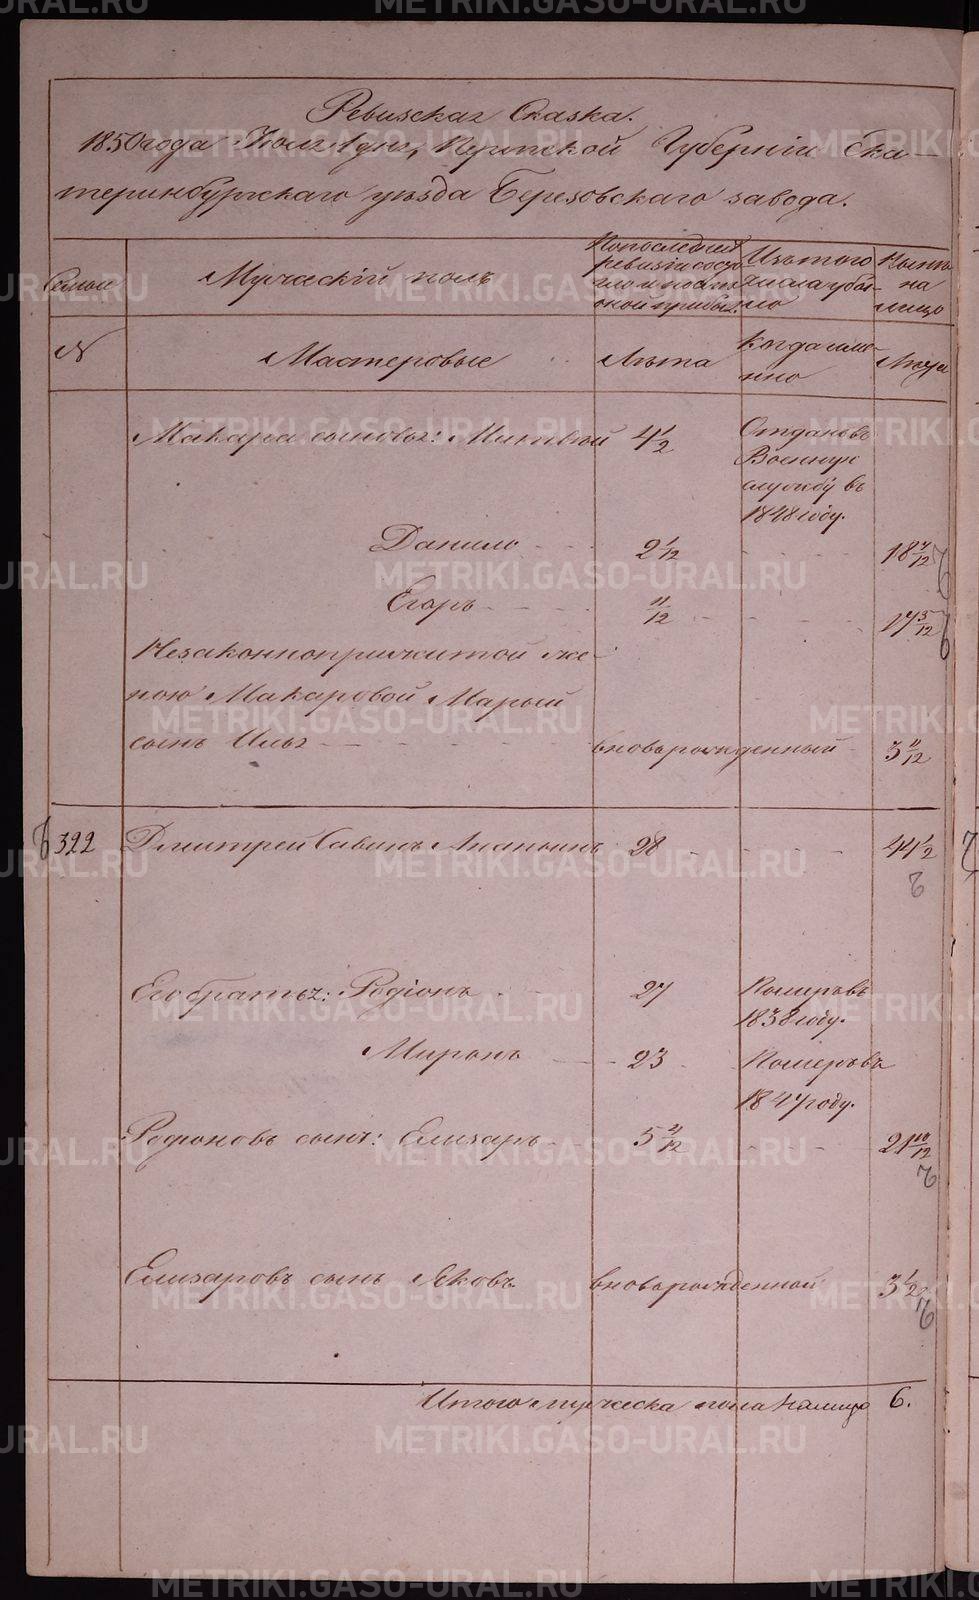 Ревизская Сказка.
1850 года дня, Пермской Губерніи Ека-
теринбургскаго уѣзда Березовскаго завода.
Семьи
Мужескій полъ
По последней
ревизіи состо
яло и после
оной прибы:
Изъ того
числа убы-
ло
Нынѣ
на
лицо
N
Мастеровые
Лѣта
Когда име-
нно
Лѣта
Макара сыновья: Матвей 4 1/2 Отданъ въ
Военную
службу въ
1848 году.
Данило 2 1/12 18 7/12
Егоръ 11/12 17 5/12
Незаконноприжитой же-
ною Макаровой Марьей
сынъ Илья вноворожденный 3 11/12
322 Дмитрей Савинъ Ананьинъ 28 44 1/2
Его братья: Родіонъ 27 Померъ въ
1838 году.
Миронъ 23 Померъ въ
1847 году.
Родионовъ сынъ: Елизаръ 5 4/12 21 10/12
Елизаровъ сынъ Яковъ вноворожденной 3 1/2
Итого мужеска пола налицо 6.
METRIKI.GASO-URAL.RU